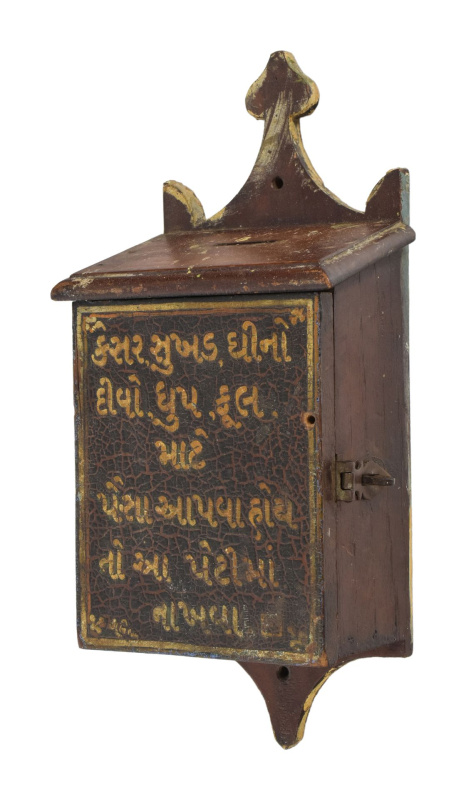 કેસર, સુખડ, ઘીનો
દીવો, ધુપ, ફૂલ,
માટે
પૈસા આપવા હોય
તો આ પેટીમાં
નાખવા